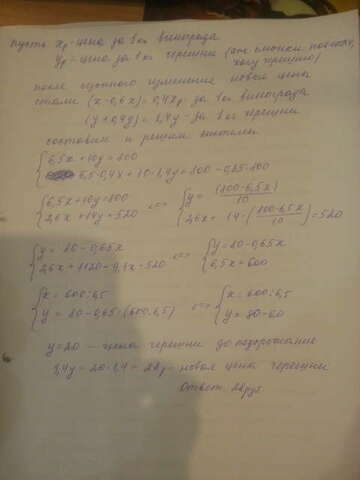 пусть x р - цена за 1 кг винограда
y р - цена за 1 кг черешни
после сезонного изменения новая цена
стала (x-0,6x) = 0,4x р за 1 кг винограда
(y+0,4y) = 1,4y - за 1 кг черешни
составим и решим систему
{6,5x+10y=800
6,5·0,4x+10·1,4y=800-0,35·800
{6,5x+10y=800 <=> {y=(800-6,5x)/10
2,6x+14y=520 2,6x+14·(800-6,5x)/10=520
{y=80-0,65x <=> {y=80-0,65x
2,6x+1120-9,1x=520 6,5x=600
{x=600:6,5 <=> {x=600:6,5
y=80-0,65·(600:6,5) y=80-60
y=20 - цена черешни до подорожания
1,4y=20·1,4=28 р - новая цена черешни
Ответ: 28 руб